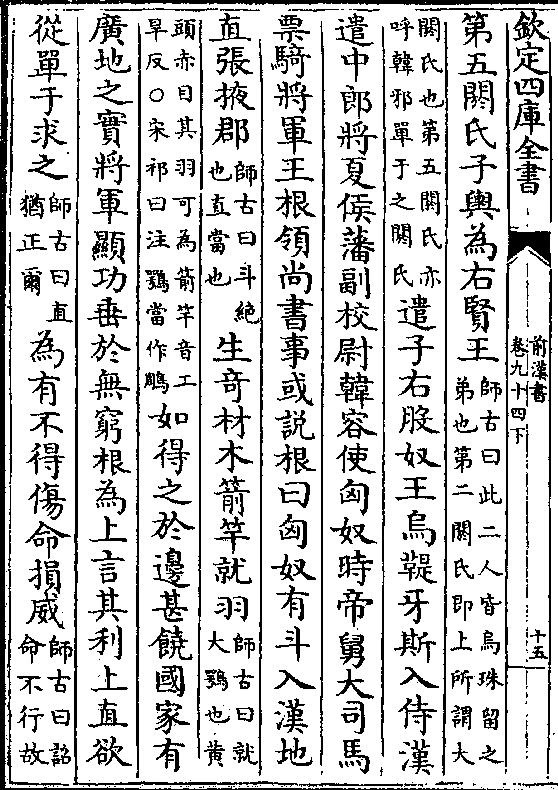 欽定四庫全書
前漢書
卷九十四下
十五
第五閼氏子輿為右賢王師古曰此二人皆烏珠留之弟也第二閼氏即上所謂大
閼氏也第五閼氏亦呼韓邪單于之閼氏遣子右股奴王烏鞮牙斯入侍漢
遣中郎將夏侯藩副校尉韓容使匈奴時帝舅大司馬
票騎將軍王根領尚書事或説根曰匈奴有斗入漢地
直張掖郡師古曰斗絶也直當也生竒材木箭竿就羽師古曰就大鶚也黄
頭赤目其羽可為箭竿音工旱反○宋祁曰注鶚當作鵰如得之於邊甚饒國家有
廣地之實將軍顯功垂於無窮根為上言其利上直欲
從單于求之師古曰直猶正爾為有不得傷命損威師古曰詔命不行故